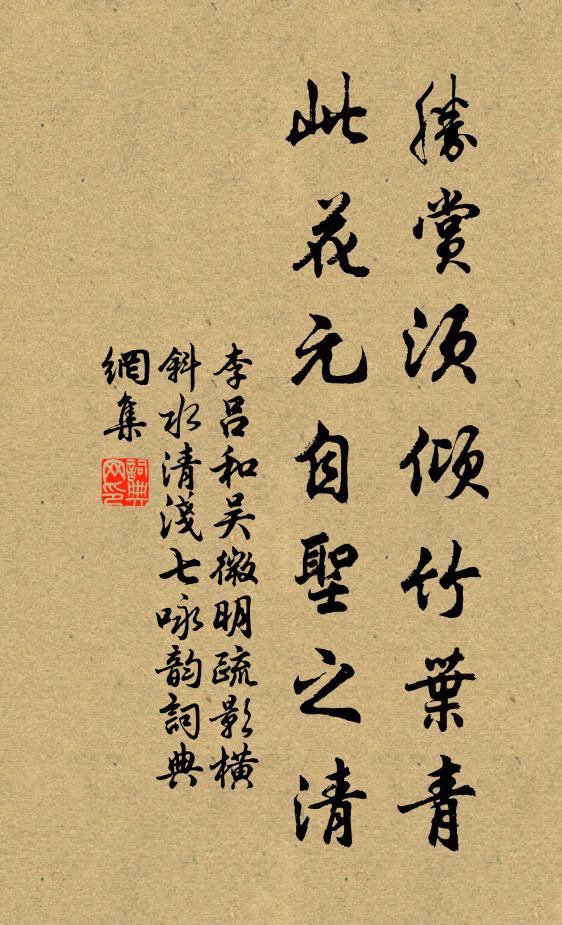 勝賞須傾竹葉青
此花元自聖之清
李呂和吴微明疏影橫
斜水清淺七咏韵詞典
網集
詞典網印